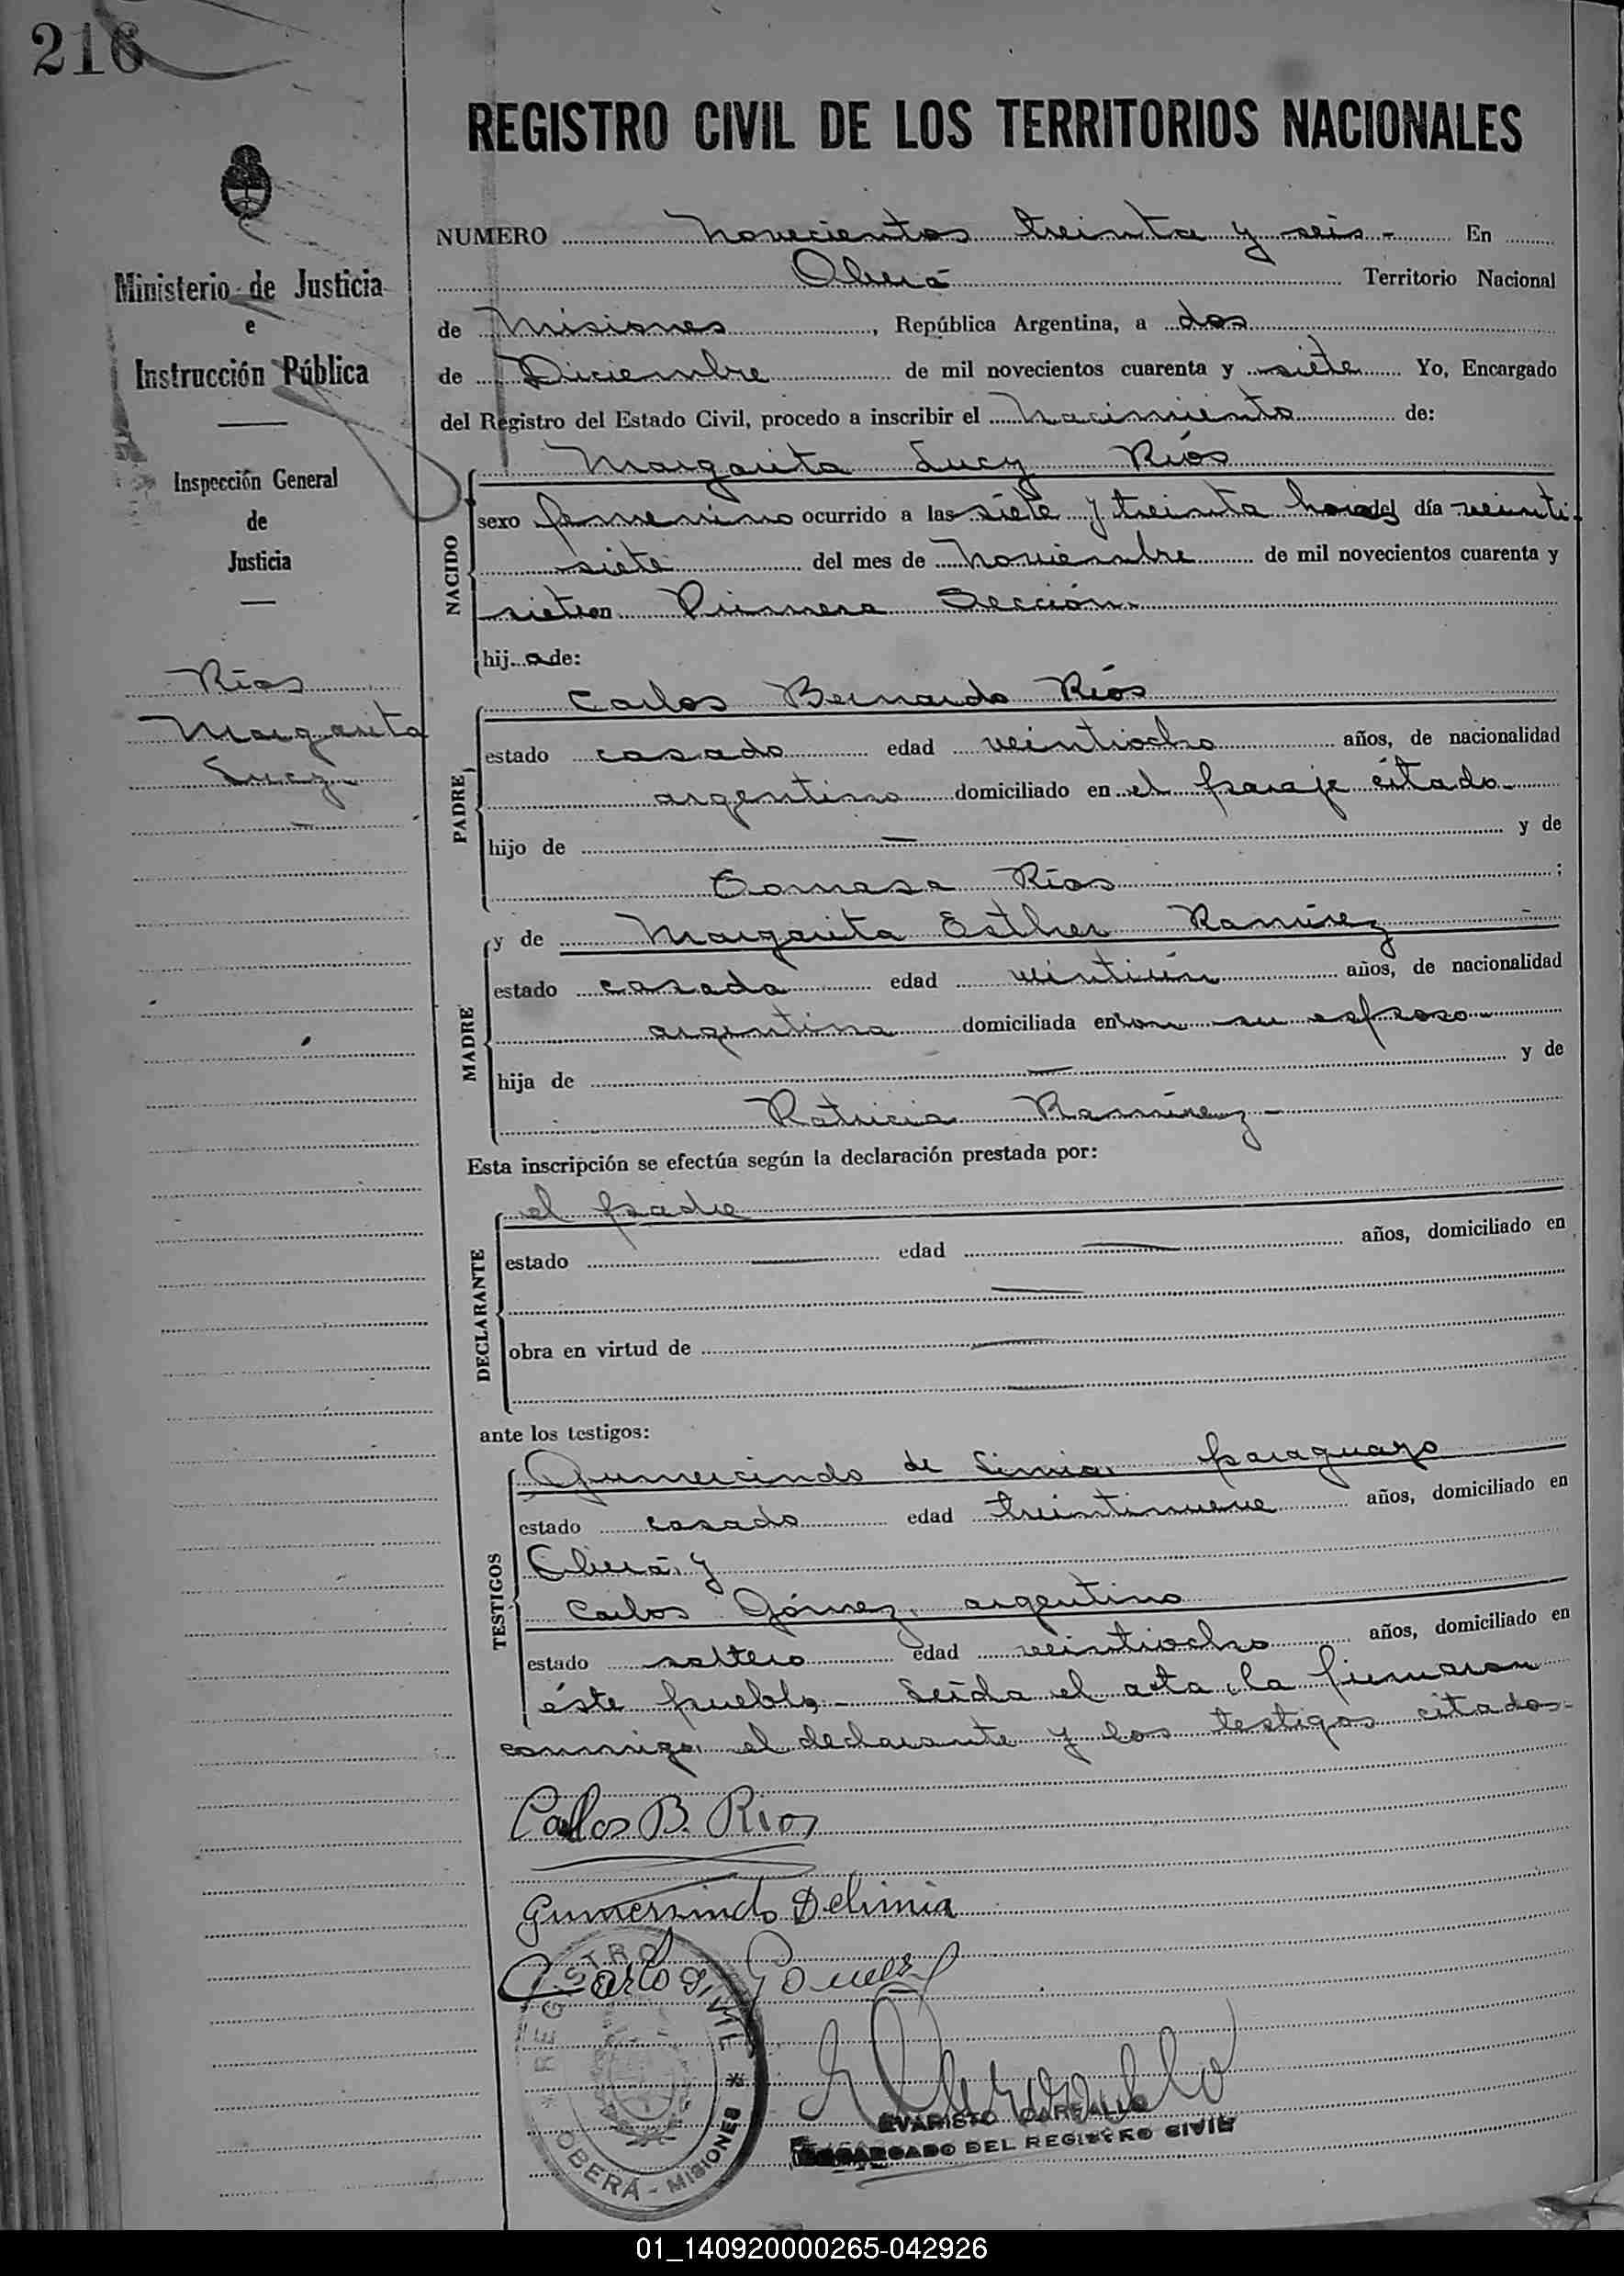 216
REGISTRO CIVIL DE LOS TERRITORIOS NACIONALES
Ministerio de Justicia
e
Instrucción Pública
Inspección General
de
Justicia
Ríos
Margarita
Lucy
NUMERO novecientos treinta y seis - En
Oberá Territorio Nacional
de Misiones, República Argentina, a dos
de Diciembre de mil novecientos cuarenta y siete Yo, Encargado
del Registro del Estado Civil, procedo a inscribir el nacimiento de:
NACIDO
Margarita Lucy Ríos
sexo femenino ocurrido a las siete y treinta horas del día veinti-
siete del mes de Noviembre de mil novecientos cuarenta y
siete en Primera Sección
hija de:
PADRE
Carlos Bernardo Ríos
estado casado edad veintiocho años, de nacionalidad
argentino domiciliado en el paraje citado
hijo de — y de
Tomasa Ríos ;
MADRE
y de Margarita Esther Ramírez
estado casada edad veintiún años, de nacionalidad
argentina domiciliada en con su esposo
hija de — y de
Patricia Ramírez -
Esta inscripción se efectúa según la declaración prestada por:
DECLARANTE
el padre
estado — edad — años, domiciliado en
—
obra en virtud de —
—
ante los testigos:
TESTIGOS
Gumercindo de Limia, paraguayo
estado casado edad treintinueve años, domiciliado en
Oberá, y
Carlos Gómez, argentino
estado soltero edad veintiocho años, domiciliado en
éste pueblo.- Leída el acta, la firmaron
conmigo, el declarante y los testigos citados.
Carlos B. Rios
Gumersindo Delimia
Carlos Gomez
REGISTRO CIVIL * OBERÁ - MISIONES *
EVARISTO CARBALLO
ENCARGADO DEL REGISTRO CIVIL
01_140920000265-042926